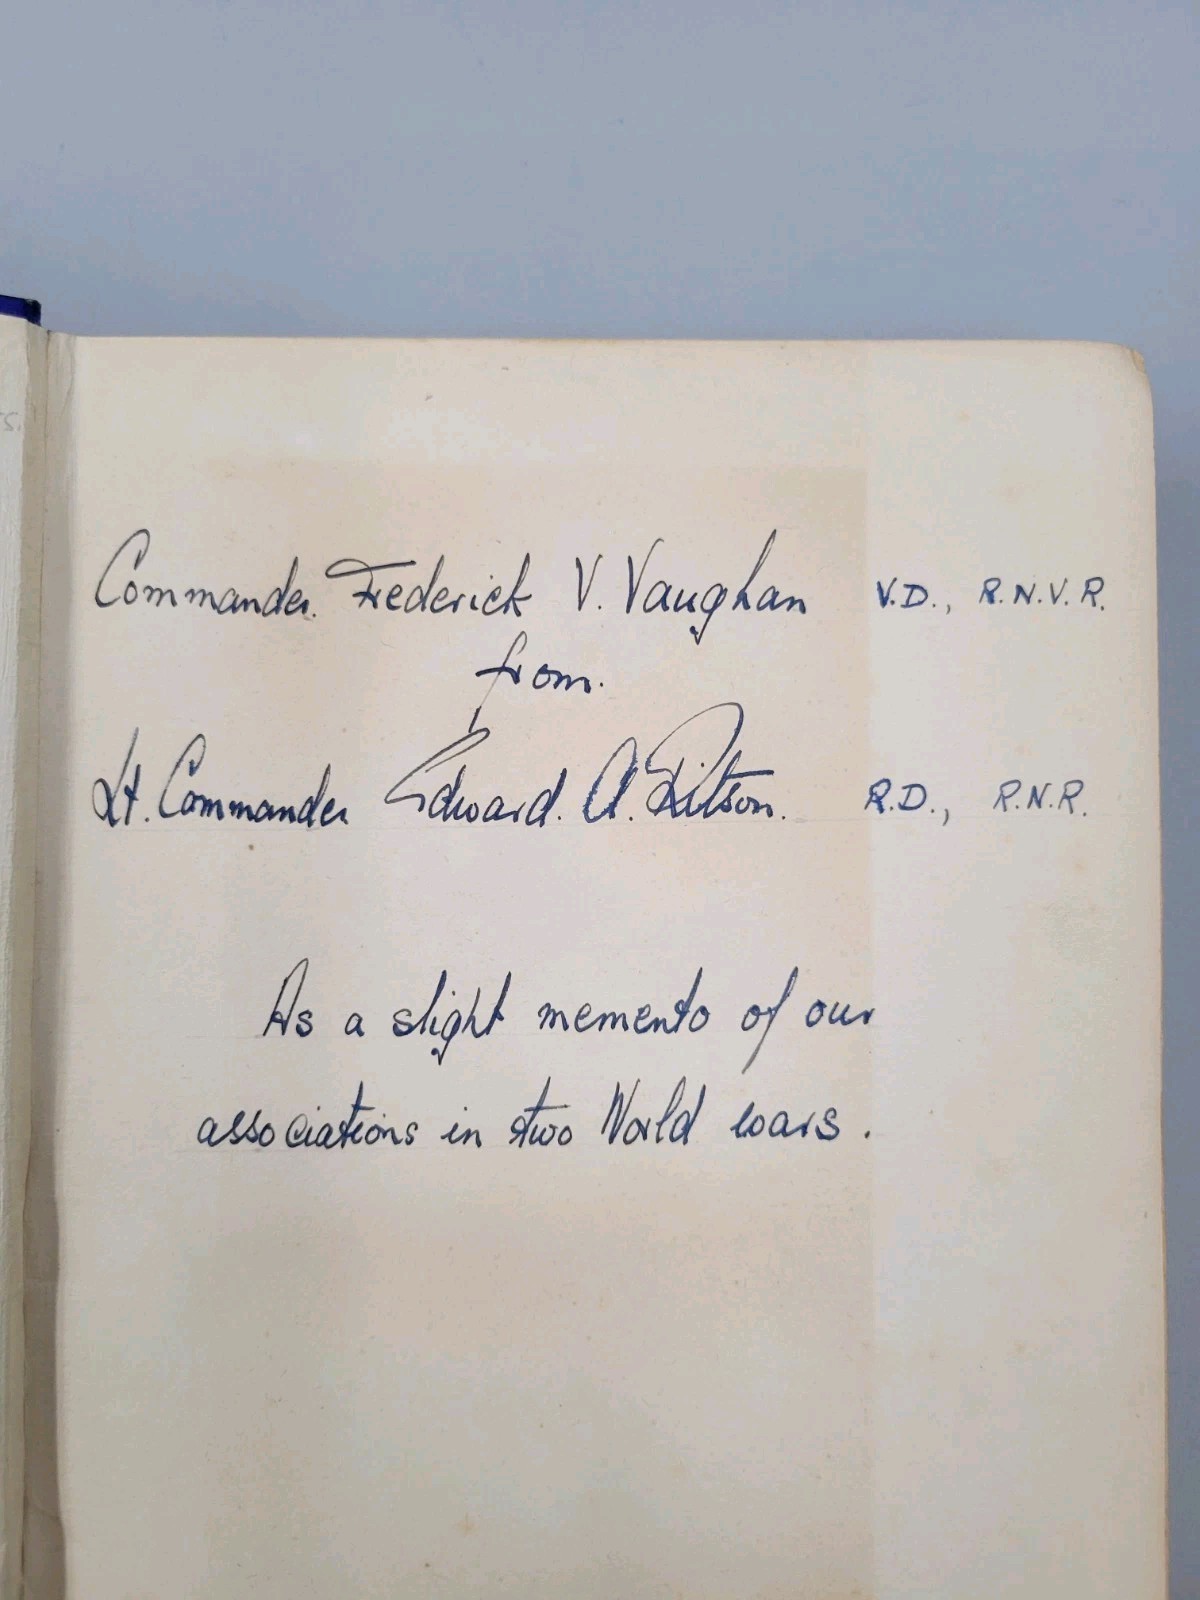 Commander Frederick V. Vaughan V.D., R.N.V.R.
from
Lt. Commander Edward A. Ritson. R.D., R.N.R.
As a slight memento of our
associations in two World wars.